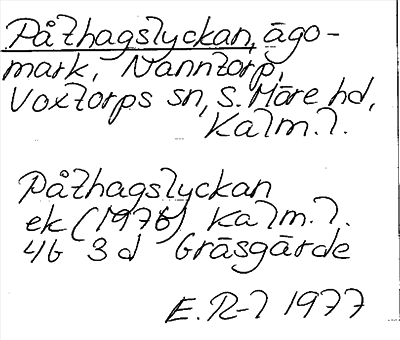 Påthagslyckan, ägo-
mark, Nanntorp,
Voxtorps sn, S. Möre hd,
Kalm. l.
Påthagslyckan
ek (1976) Kalm. l.
4G 3d Gräsgärde
E. R-l 1977